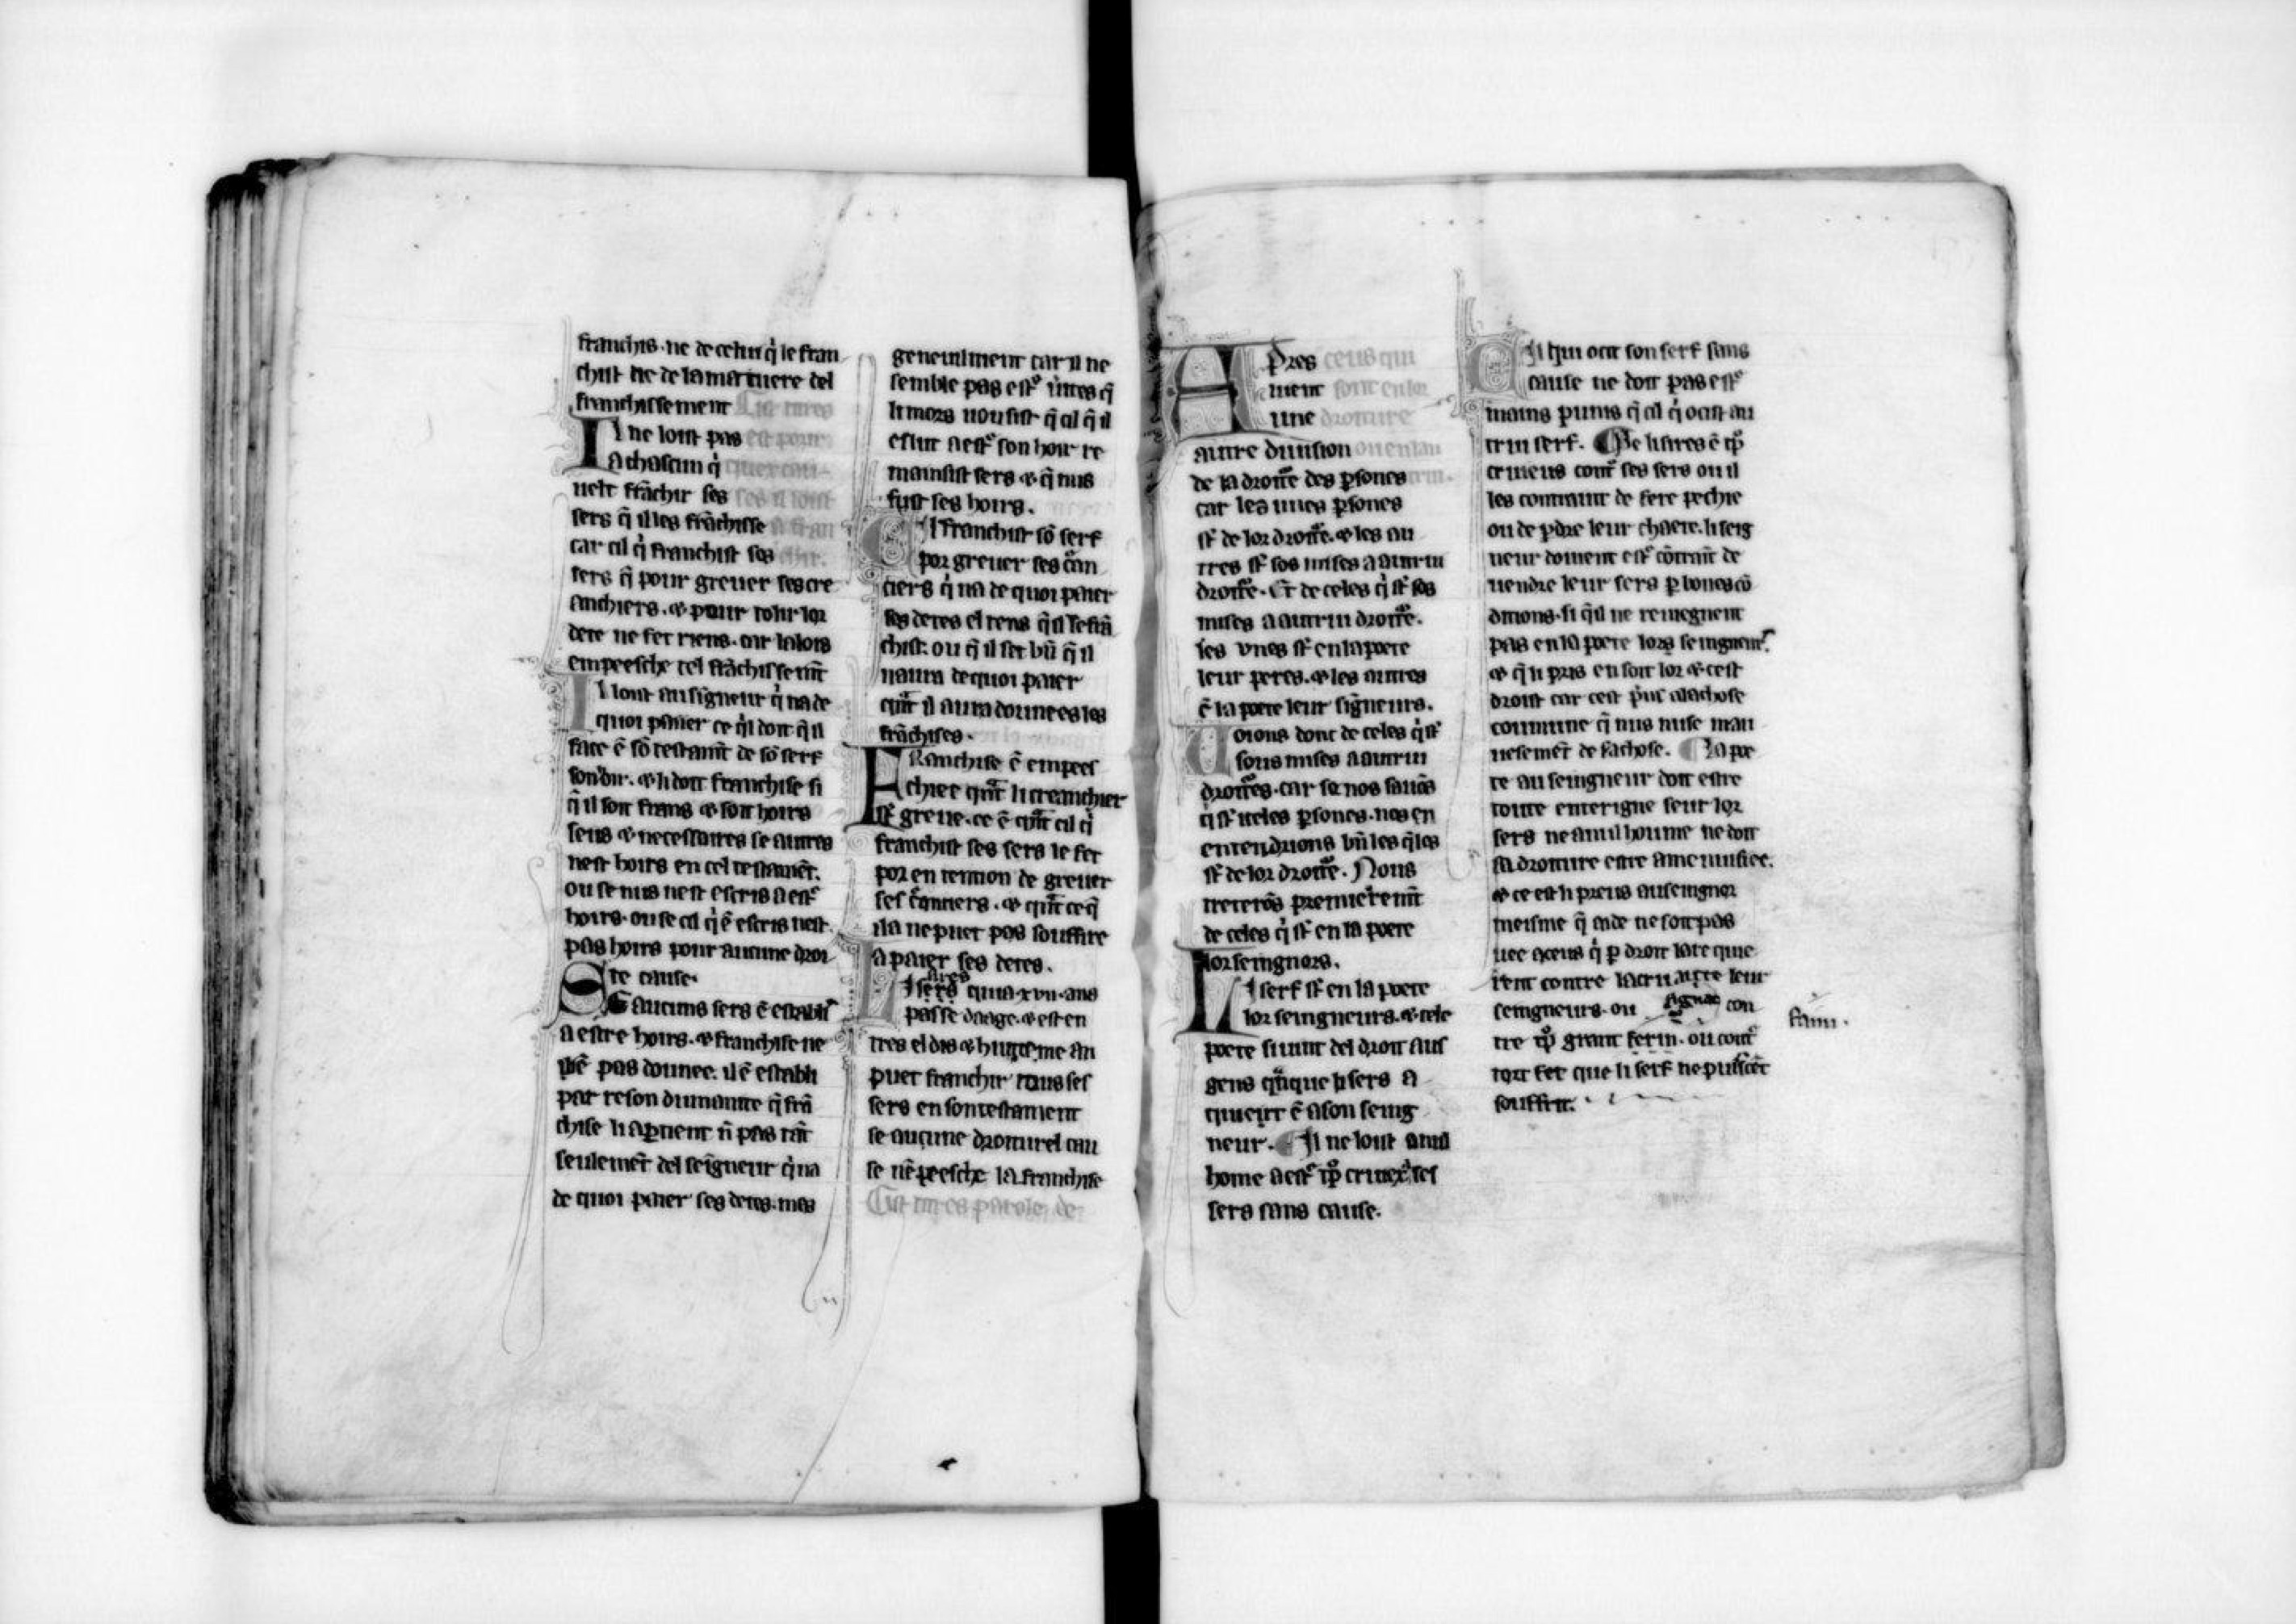 franchis. ne de celui q̇ le fran
chist ne de la martiere del
franchissement Cist titres
Il ne loist pas est pour
a chascun q̇ quex cau-
uelt frāchir ses ses il loist
sers q̄ il les frāchisse a fran
car cil q̇ franchist ses chir.
sers q̄ pour greuer ses cre
anchiers. ⁊ pour tolir lor
dete ne fet riens. car la lois
empeesche tel frāchissemt̄
Il loist au signeur q̇ na de
quoi paier ce q̄l doit q̄ il
face ē sō testamt̄ de sō serf
⁊ li doit franchise si
q̄ il soit frans ⁊ soit hoirs
seus ⁊ necessaires se autres
nest hoirs en cel testamēt.
ou se nus nest escris a estͤ
hoirs. ou se cil q̇ ē escris nest
pas hoirs pour aucune droi
te cause.
Se aucuns sers ē establi
a estre hoirs. ⁊ franchise ne
pas donnee. il ē establi
par reson dumanite q̄ frā
chise li aꝑtient n̄ pas tāt
seulemēt del seigneur q̇ na
de quoi paier ses detes. mes
generalment car il ne
semble pas estͤ q̄
li mors uousist q̄ cil q̄ il
eslut a estͤ son hoir re
mainsist sers ⁊ q̄ nus
fust ses hoirs.
Cil franchist sō serf
por greuer ses cͣan
ciers q̇ na de quoi paier
ses detes el tens q̄ il le frā
chist. ou q̄ il set bn̄ q̄ il
naura de quoi paier
qn̄t il aura donnees les
frāchises.
Franchise ē empees
chiee qn̄t li creanchier
st̄ greue. ce ē qn̄t cil q̇
franchist ses sers le fet
por entention de greuer
ses cͣanciers. ⁊ qn̄t ce q̄
il a ne puet pas souffire
a paier ses detes.
Li sers qui a xvii. ans
passe daage. ⁊ est en
tres el dis ⁊ huitieme an
puet franchir tous ses
sers en son testament
se aucune droiturel cau
se nēpeesche la franchise
Cist titres parole, de
Apres ceus qui
uient sont en lor
une droiture
autre diuision ou en lau
de la droitͤ des ꝑsones trui-
car les unes ꝑsones
st̄ de lor droitͤ. ⁊ les au
tres st̄ sos mises a autrui
droitͤ. Et de celes q̇ st̄ sos
mises a autrui droitͤ.
les vnes st̄ en la poete
leur peres. ⁊ les autres
ē la poete leur signeurs.
Uoions dont de celes q̇ st̄
sous mises a autrui
droitͤes. car se nos sauōs
q̇ st̄ iteles ꝑsones. nos en
entendrons bn̄ les q̄les
st̄ de lor droitͤ. Nous
treterōs premieremt̄
de celes q̇ st̄ en la poete
lor seingnors.
Li serf st̄ en la poete
lor seingneurs. ⁊ cele
poete si uint del droit aus
gens q̄nque li sers a
quiert ē a son seing
neur. Il ne loist a nul
home a estͤ tp̄ crueͯ a ses
sers sans cause.
Cil qui ocit son serf sans
cause ne doit pas estͤ
mains punis q̄ cil q̇ ocist au
trui serf. Se li sires ē tp̄
crueus contͤ ses sers ou il
les contraint de fere pechie
ou de ꝑdre leur chaere. li seig
neur doiuent estͤ cōtraīt de
uendre leur sers ꝑ bones cō
ditions. si q̄l ne reuiegnent
pas en la poete lors seingneurs
⁊ q̄ li pris en soit lor ⁊ cest
droit car cest a la chose
commune q̄ nus nuse mau
uesemēt de sa chose. La poe
te au seingneur doit estre
toute enterigne seur lor
sers ne a nul houme ne doit
sa droiture estre amenuisiee.
⁊ ce est li preus au seingnor
meisme q̄ aide ne soit pas
uee a ceus q̇ ꝑ droit la re quie
rent contre la cruaute leur
seingneurs. ou con
tre tp̄ grant ferin. ou contͤ
tort fet que li serf ne puissēt
souffrir.
faim.